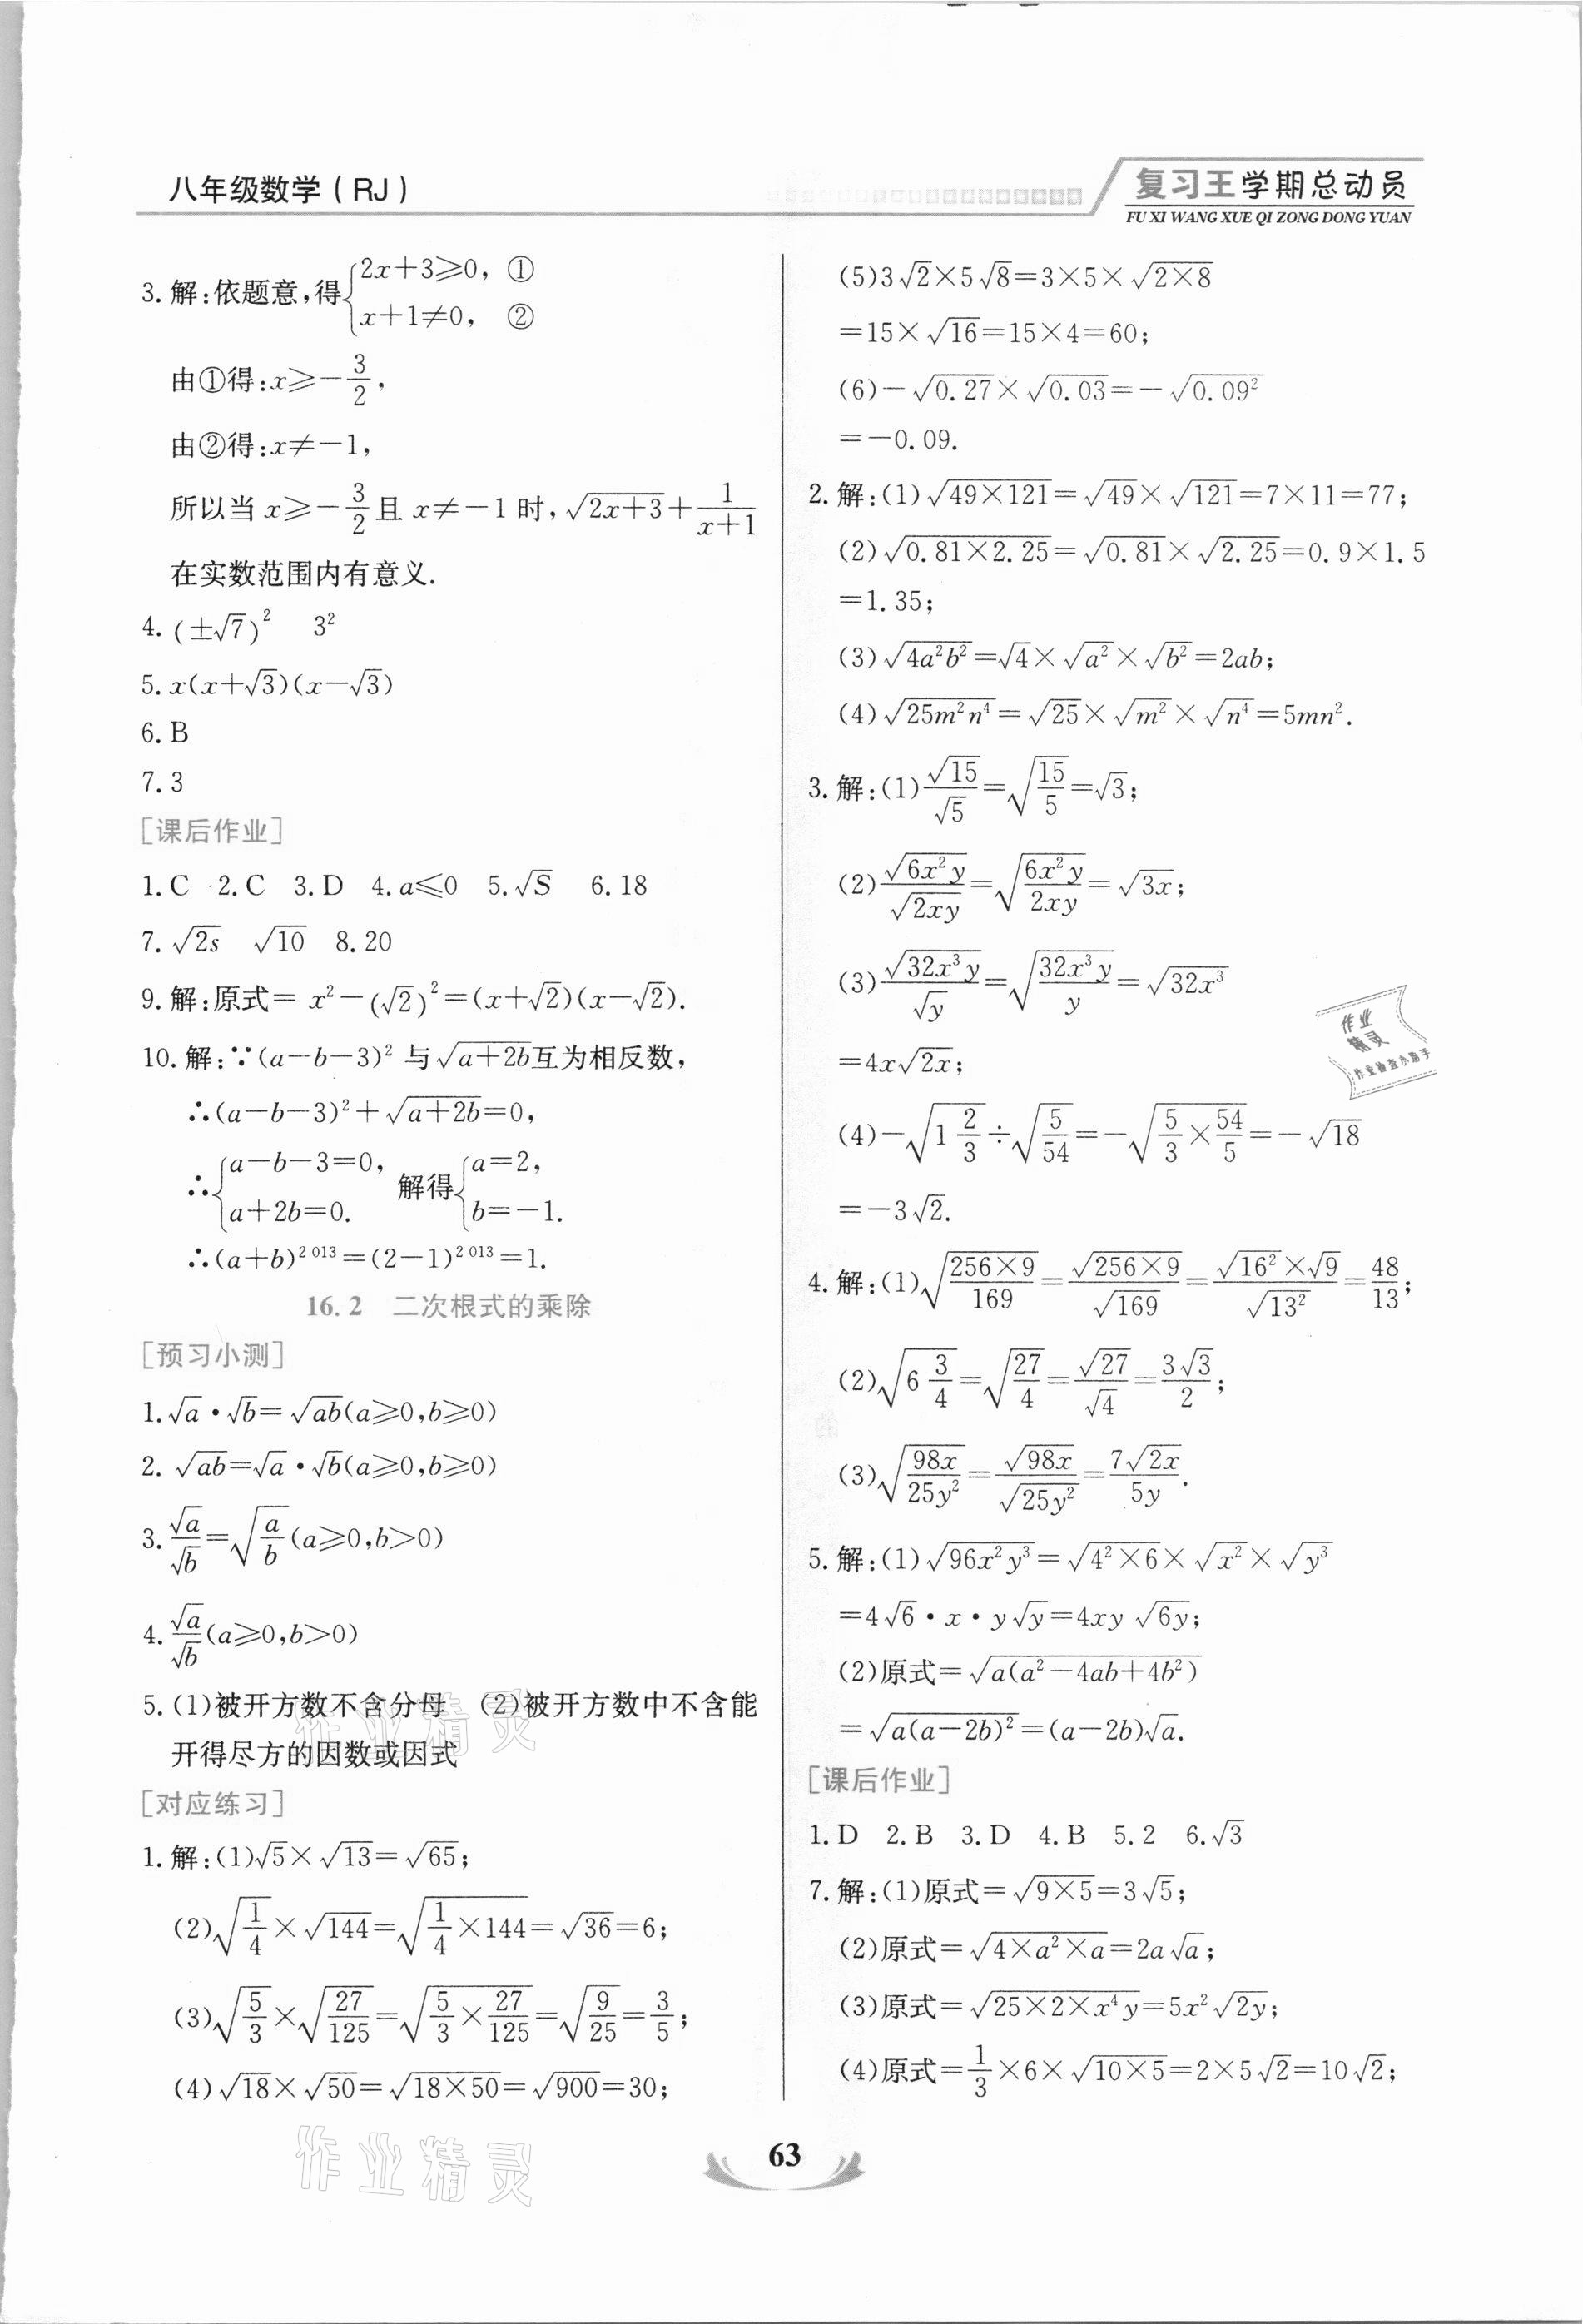 八年级数学(RJ)
复习王学期总动员
FU XI WANG XUE QI ZONG DONG YUAN
3. 解:依题意,得{2x+3≥0, ①
x+1≠0, ②
由①得:x≥-3/2,
由②得:x≠-1,
所以当 x≥-3/2 且 x≠-1 时,√(2x+3)+1/(x+1)
在实数范围内有意义.
4. (±√7)² 3²
5. x(x+√3)(x-√3)
6. B
7. 3
[课后作业]
1. C 2. C 3. D 4. a≤0 5. √S 6. 18
7. √(2s) √10 8. 20
9. 解:原式= x²-(√2)²=(x+√2)(x-√2).
10. 解:∵(a-b-3)² 与√(a+2b)互为相反数,
∴(a-b-3)²+√(a+2b)=0,
∴{a-b-3=0, a+2b=0. 解得{a=2, b=-1.
∴(a+b)^2 013=(2-1)^2 013=1.
16. 2 二次根式的乘除
[预习小测]
1. √a·√b=√(ab)(a≥0,b≥0)
2. √(ab)=√a·√b(a≥0,b≥0)
3. √a/√b=√(a/b)(a≥0,b>0)
4. √a/√b(a≥0,b>0)
5. (1)被开方数不含分母 (2)被开方数中不含能
开得尽方的因数或因式
[对应练习]
1. 解:(1)√5×√13=√65;
(2)√(1/4)×√144=√(1/4×144)=√36=6;
(3)√(5/3)×√(27/125)=√(5/3×27/125)=√(9/25)=3/5;
(4)√18×√50=√(18×50)=√900=30;
(5)3√2×5√8=3×5×√(2×8)
=15×√16=15×4=60;
(6)-√0.27×√0.03=-√(0.09²)
=-0.09.
2. 解:(1)√(49×121)=√49×√121=7×11=77;
(2)√(0.81×2.25)=√0.81×√2.25=0.9×1.5
=1.35;
(3)√(4a²b²)=√4×√(a²)×√(b²)=2ab;
(4)√(25m²n⁴)=√25×√(m²)×√(n⁴)=5mn².
3. 解:(1)√15/√5=√(15/5)=√3;
(2)√(6x²y)/√(2xy)=√(6x²y/2xy)=√(3x);
(3)√(32x³y)/√y=√(32x³y/y)=√(32x³)
=4x√(2x);
(4)-√(1 2/3)÷√(5/54)=-√(5/3×54/5)=-√18
=-3√2.
4. 解:(1)√(256×9/169)=√(256×9)/√169=√(16²)×√9/√(13²)=48/13;
(2)√(6 3/4)=√(27/4)=√27/√4=3√3/2;
(3)√(98x/25y²)=√(98x)/√(25y²)=7√(2x)/5y.
5. 解:(1)√(96x²y³)=√(4²×6)×√(x²)×√(y³)
=4√6·x·y√y=4xy√(6y);
(2)原式=√(a(a²-4ab+4b²))
=√(a(a-2b)²)=(a-2b)√a.
[课后作业]
1. D 2. B 3. D 4. B 5. 2 6. √3
7. 解:(1)原式=√(9×5)=3√5;
(2)原式=√(4×a²×a)=2a√a;
(3)原式=√(25×2×x⁴y)=5x²√(2y);
(4)原式=1/3×6×√(10×5)=2×5√2=10√2;
作业
精灵
作业检查小助手
作业精灵
作业精灵
63